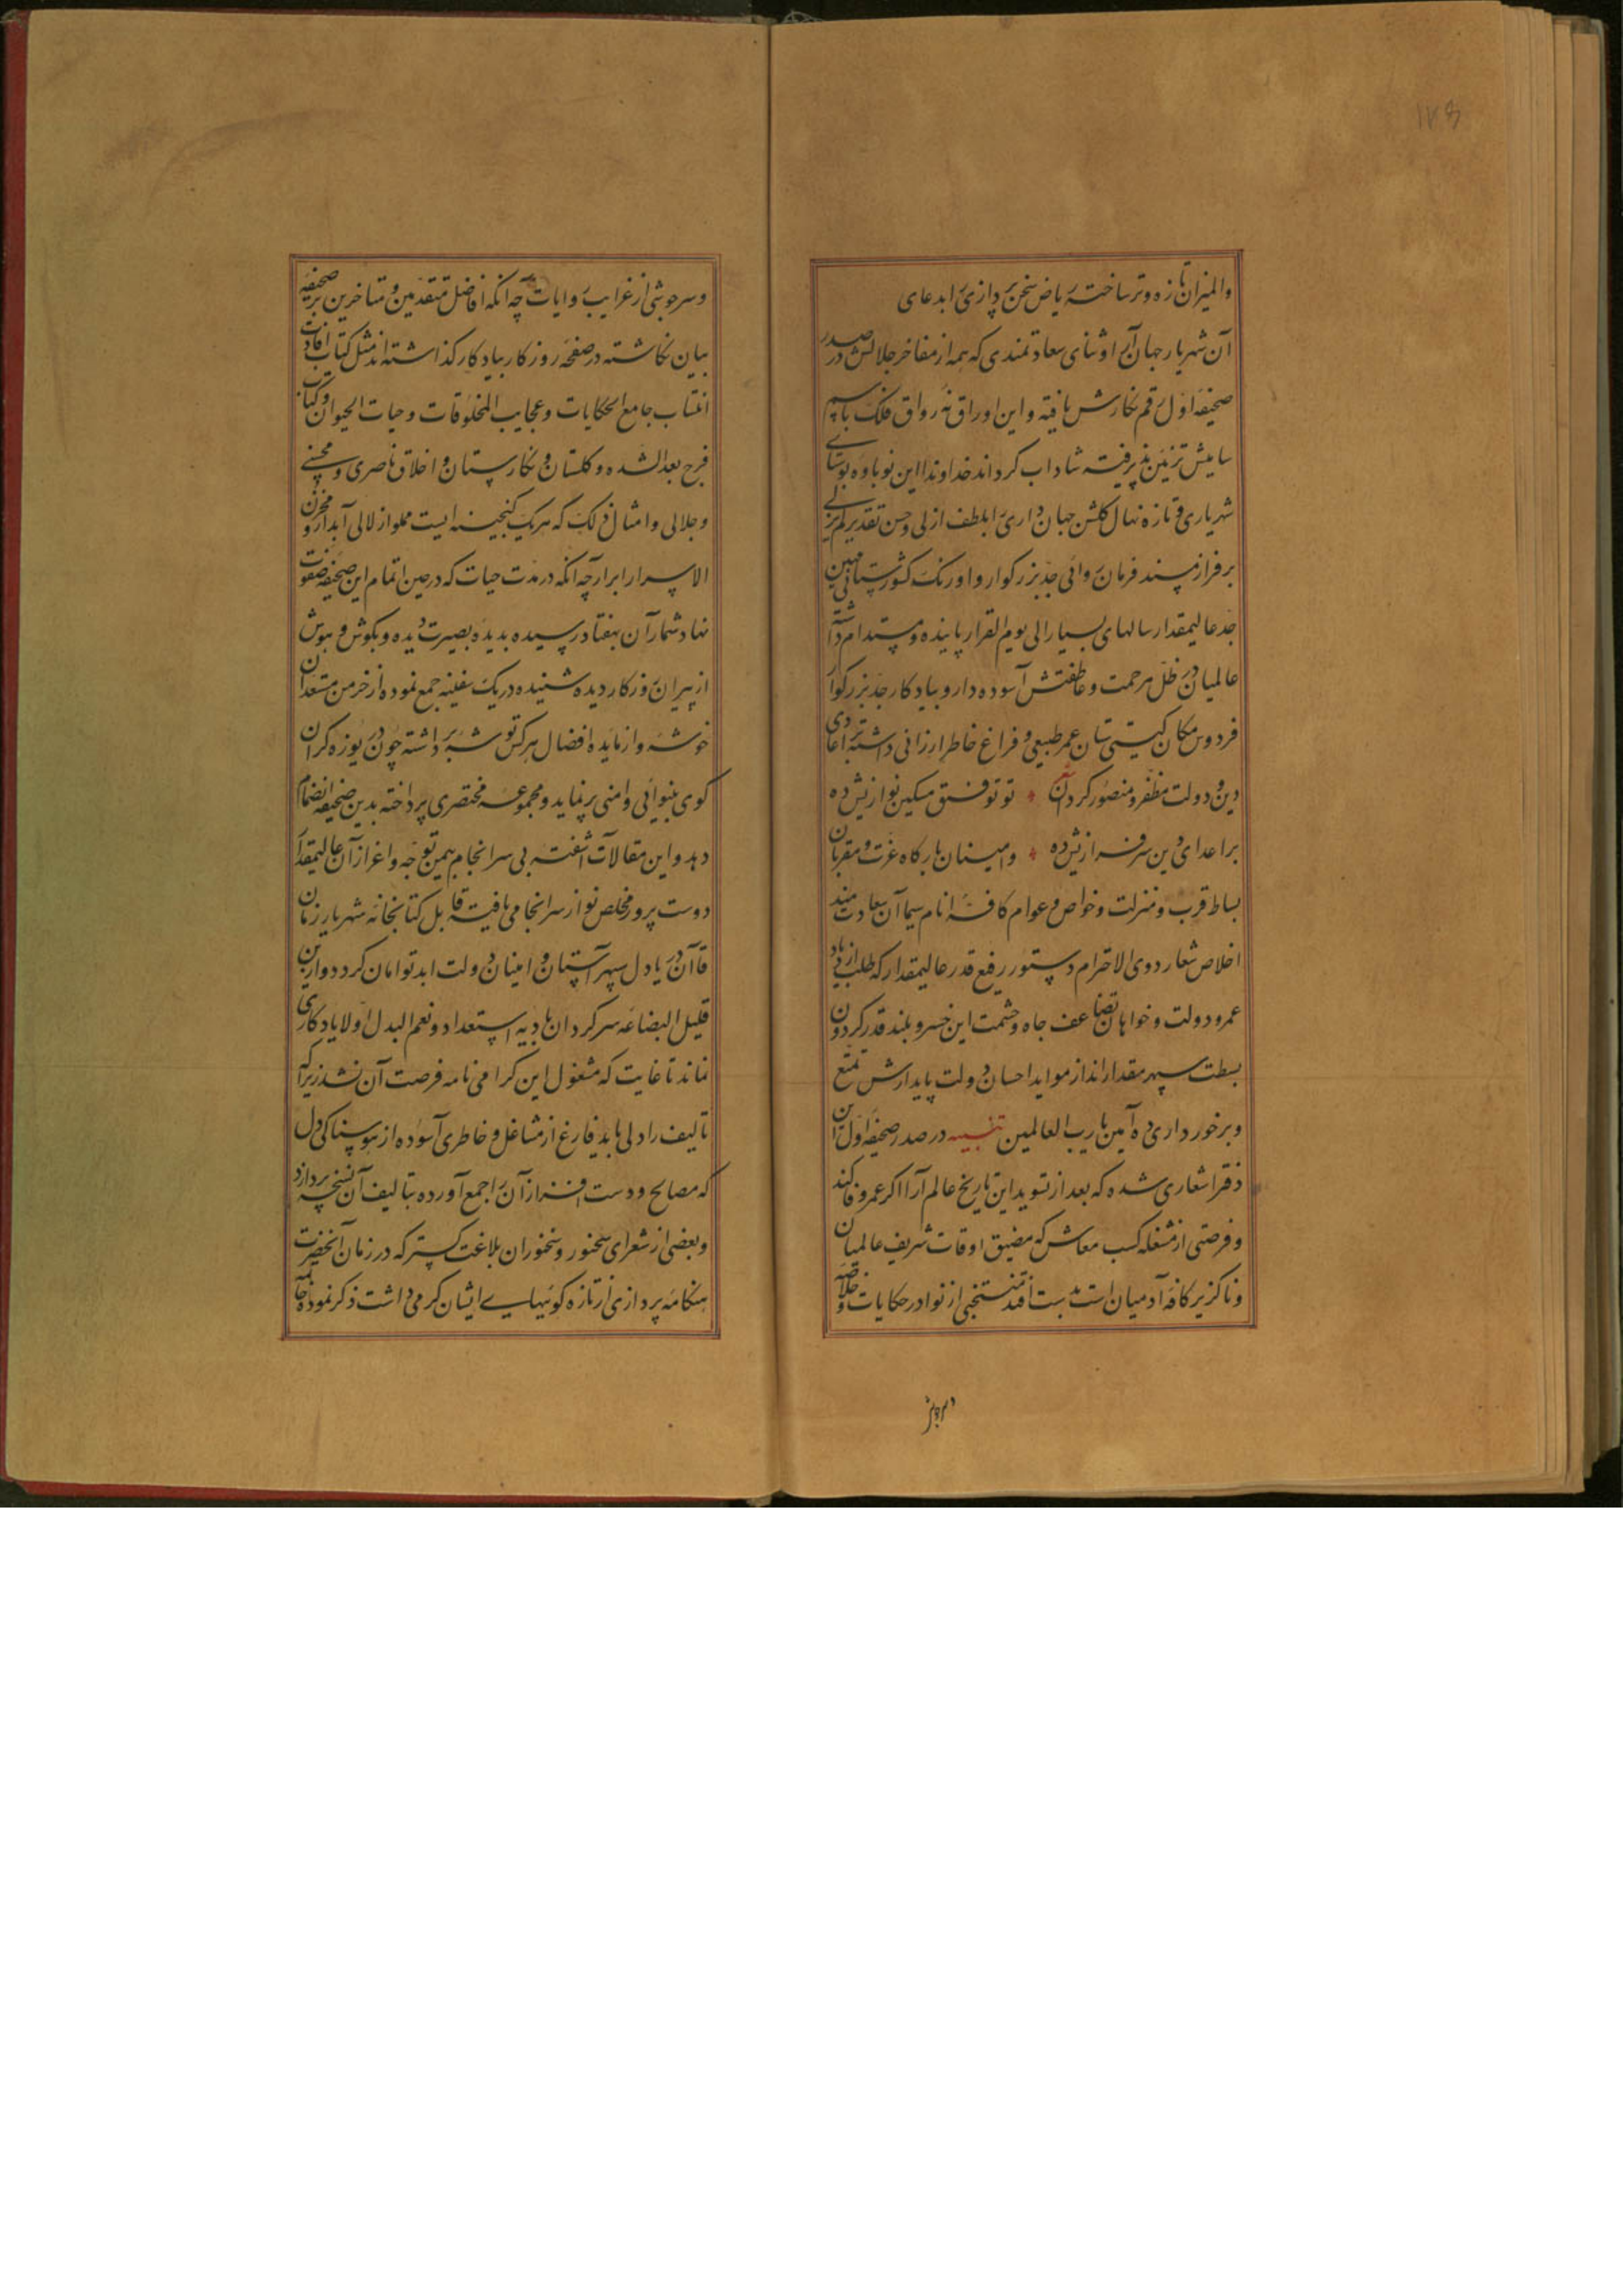 ۱۲۶
والمیزان تازه و تر ساخته ریاض سخن پردازی را بدعای
آن شهریار جهان آرا و ثنای سعادتمندی که همه از مفاخر جلالش در صدر
صحیفه اول رقم نکارش یافته و این اوراق نه رواق فلک باسم
سامیش تزیین پذیرفته شاداب کرداند خداوندا این نوباوه بوستان
شهریاری و تازه نهال کلشن جهان داری را بلطف ازلی و حسن تقدیر لم یزلی
بر فراز مسند فرمان روائی جد بزرکوار و اورنک کشورستانی مهین
جد عالیمقدار سالهای بسیار الی یوم القرار پاینده و مستدام داشته
عالمیان در ظل مرحمت و عاطفتش آسوده دار و بیادکار جد بزرکوار
فردوس مکان کیتی ستان عمر طبیعی و فراغ خاطر ارزانی داشته بر اعادی
دین و دولت مظفر و منصور کردان تو توفیق مسکین نوازیش ده
بر اعدای دین سرفرازیش ده و امینان بارکاه عزت و مقربان
بساط قرب و منزلت و خواص و عوام کافه انام سیما آن سعادتمند
اخلاص شعار ذوی الاحترام دستور رفیع قدر عالیمقدار که طلب ازدیاد
عمر و دولت و خواهان تضاعف جاه و حشمت این خسرو بلند قدر کردون
بسطت سپهر مقدارند از مواید احسان و دولت پایدارش تمتع
و برخورداری ده آمین یا رب العالمین تنبیه در صدر صحیفه اول این
دفتر اشعاری شده که بعد از تسوید این تاریخ عالم آرا اکر عمر وفا کند
و فرصتی از مشغله کسب معاش که مضیق اوقات شریف عالمیان
و ناکزیر کافه آدمیان است بدست افتد منتخبی از نوادر حکایات و خلاصه
و سرجوشی از غرایب روایات چه آنکه افاضل متقدمین و متاخرین بر صحیفه
بیان نکاشته در صفحه روزکار بیادکار کذاشته اند مثل کتاب افادت
انتساب جامع الحکایات و عجایب المخلوقات و حیات الحیوان و کتاب
فرج بعد الشده و کلستان و نکارستان و اخلاق ناصری و محسنی
و جلالی و امثال ذلک که هر یک کنجینه ایست مملو از لالی آبدار و مخزن
الاسرار ابرار چه آنکه در مدت حیات که در حین اتمام این صحیفه صفوت
نهاد شمار آن بهفتاد رسیده بدیده بصیرت دیده و بکوش هوش
از پیران روزکار دیده شنیده در یک سفینه جمع نموده از خرمن مستعدان
خوشه و از مایده افضال هر کس توشه برداشته چون دریوزه کران
کوی بینوائی دامنی پر نماید و مجموعه مختصری پرداخته بدین صحیفه انضمام
دهد و این مقالات آشفته بی سرانجام بیمن توجه و اعزاز آن عالیمقدار
دوست پرور مخلص نواز سرانجامی یافته قابل کتابخانه شهریار زمان
قاآن دریا دل سپهر آستان و امینان دولت ابد توامان کردد و از این
قلیل البضاعه سرکردان بادیه استعداد و نعم البدل اولاد یادکاری
نماند تا غایت که مشغول این کرامی نامه فرصت آن نشد زیرا که
تالیف را دلی باید فارغ از مشاغل و خاطری آسوده از هوسناکی دل
که مصالح و دست افزار آن را جمع آورده بتالیف آن نسخه پردازد
و بعضی از شعرای سخنور و سخنوران بلاغت کستر که در زمان آنحضرت
هنکامه پردازی از تازه کوئیهای ایشان کرمی داشت ذکر نموده خاتمه